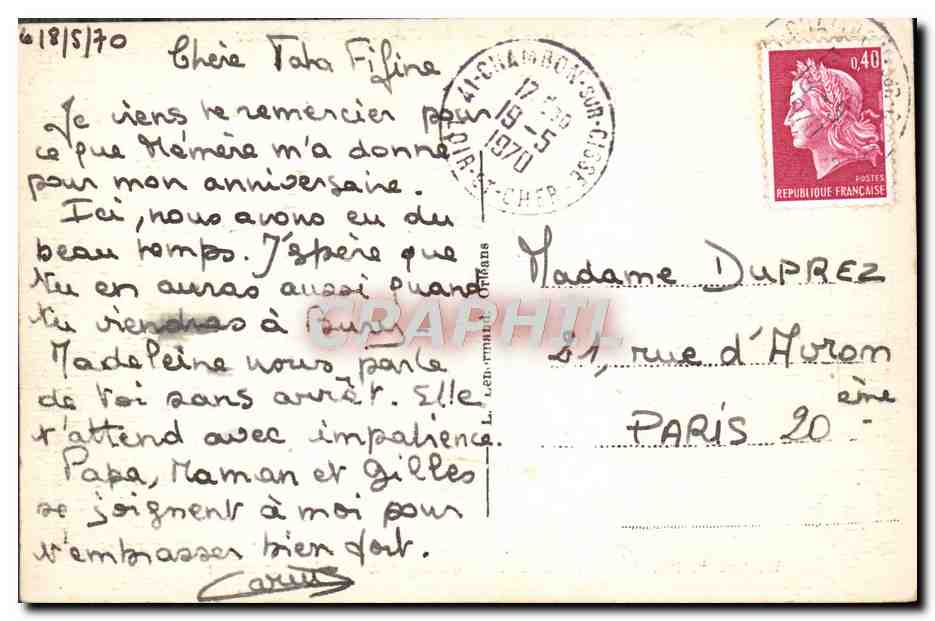 le 18/5/70
Chère Tata Fifine
Je viens te remercier pour
ce que Mémère m'a donné
pour mon anniversaire.
Ici, nous avons eu du
beau temps. J'espère que
tu en auras aussi quand
tu viendras à Bury.
Madeleine nous parle
de toi sans arrêt. Elle
t'attend avec impatience.
Papa, Maman et Gilles
se joignent à moi pour
t'embrasser bien fort.
41-CHAMBON-SUR-CISSE
17 H30
19-5
1970
LOIR-ET-CHER
0,40
POSTES
REPUBLIQUE FRANÇAISE
L. Lenormand, Orléans
CRAPHIL
Madame DUPREZ
21, rue d'Avron
PARIS 20ème